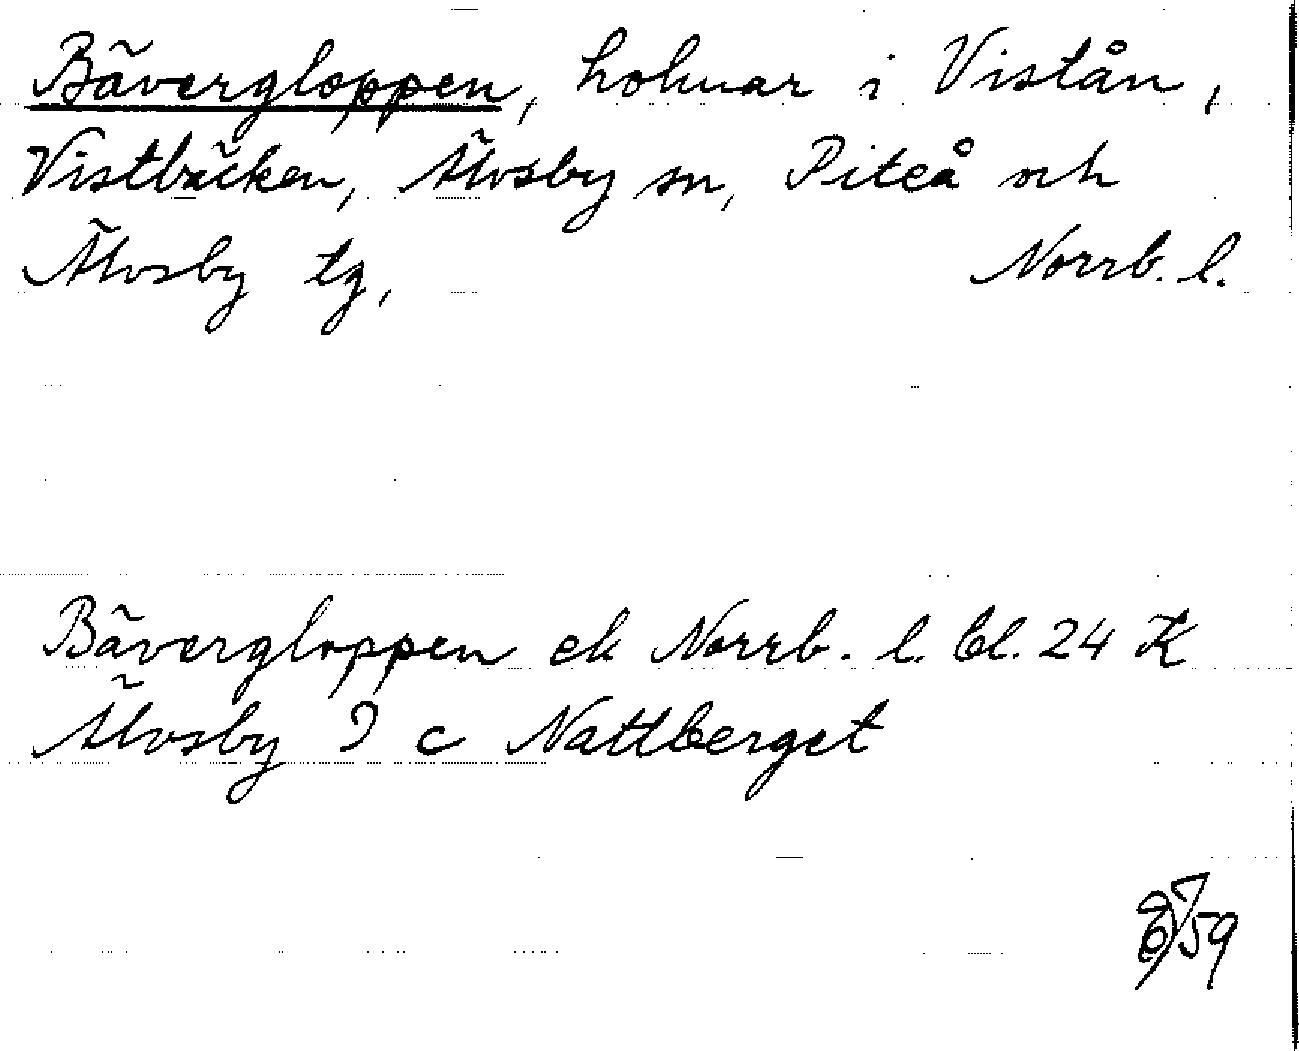 Bävergloppen, holmar i Vistån,
Vistbäcken, Älvsby sn, Piteå och
Älvsby tg, Norrb. l.
Bävergloppen ek Norrb. l. bl. 24 K
Älvsby I c Nattberget